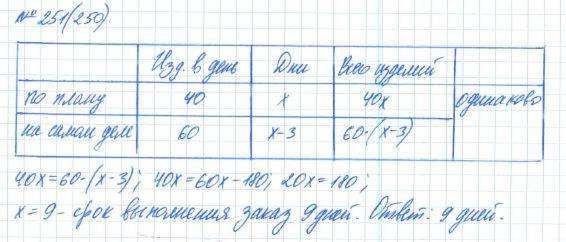 № 251(250).
Изд. в день Дни Всего изделий
по плану 40 x 40x одинаково
на самом деле 60 x-3 60·(x-3)
40x=60·(x-3); 40x=60x-180; 20x=180;
x=9- срок выполнения заказ 9 дней. Ответ: 9 дней.